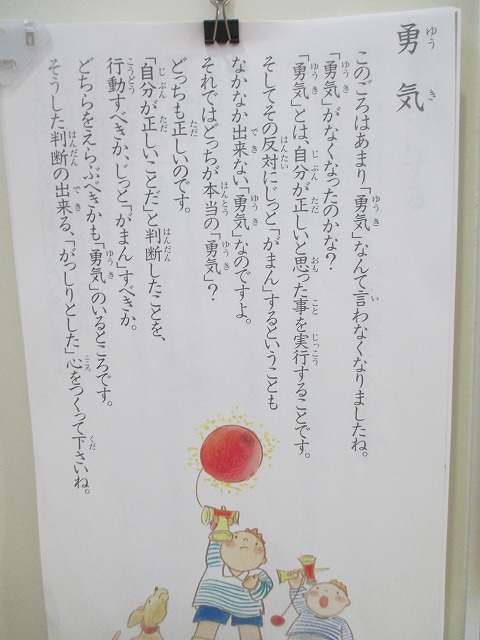 勇気
このごろはあまり「勇気」なんて言わなくなりましたね。
「勇気」がなくなったのかな？
「勇気」とは、自分が正しいと思った事を実行することです。
そしてその反対にじっと「がまん」するということも
なかなか出来ない「勇気」なのですよ。
それではどっちが本当の「勇気」？
どっちも正しいのです。
「自分が正しいことだ」と判断したことを、
行動すべきか、じっと「がまん」すべきか。
どちらをえらぶべきかも「勇気」のいるところです。
そうした判断の出来る、「がっしりとした」心をつくって下さいね。